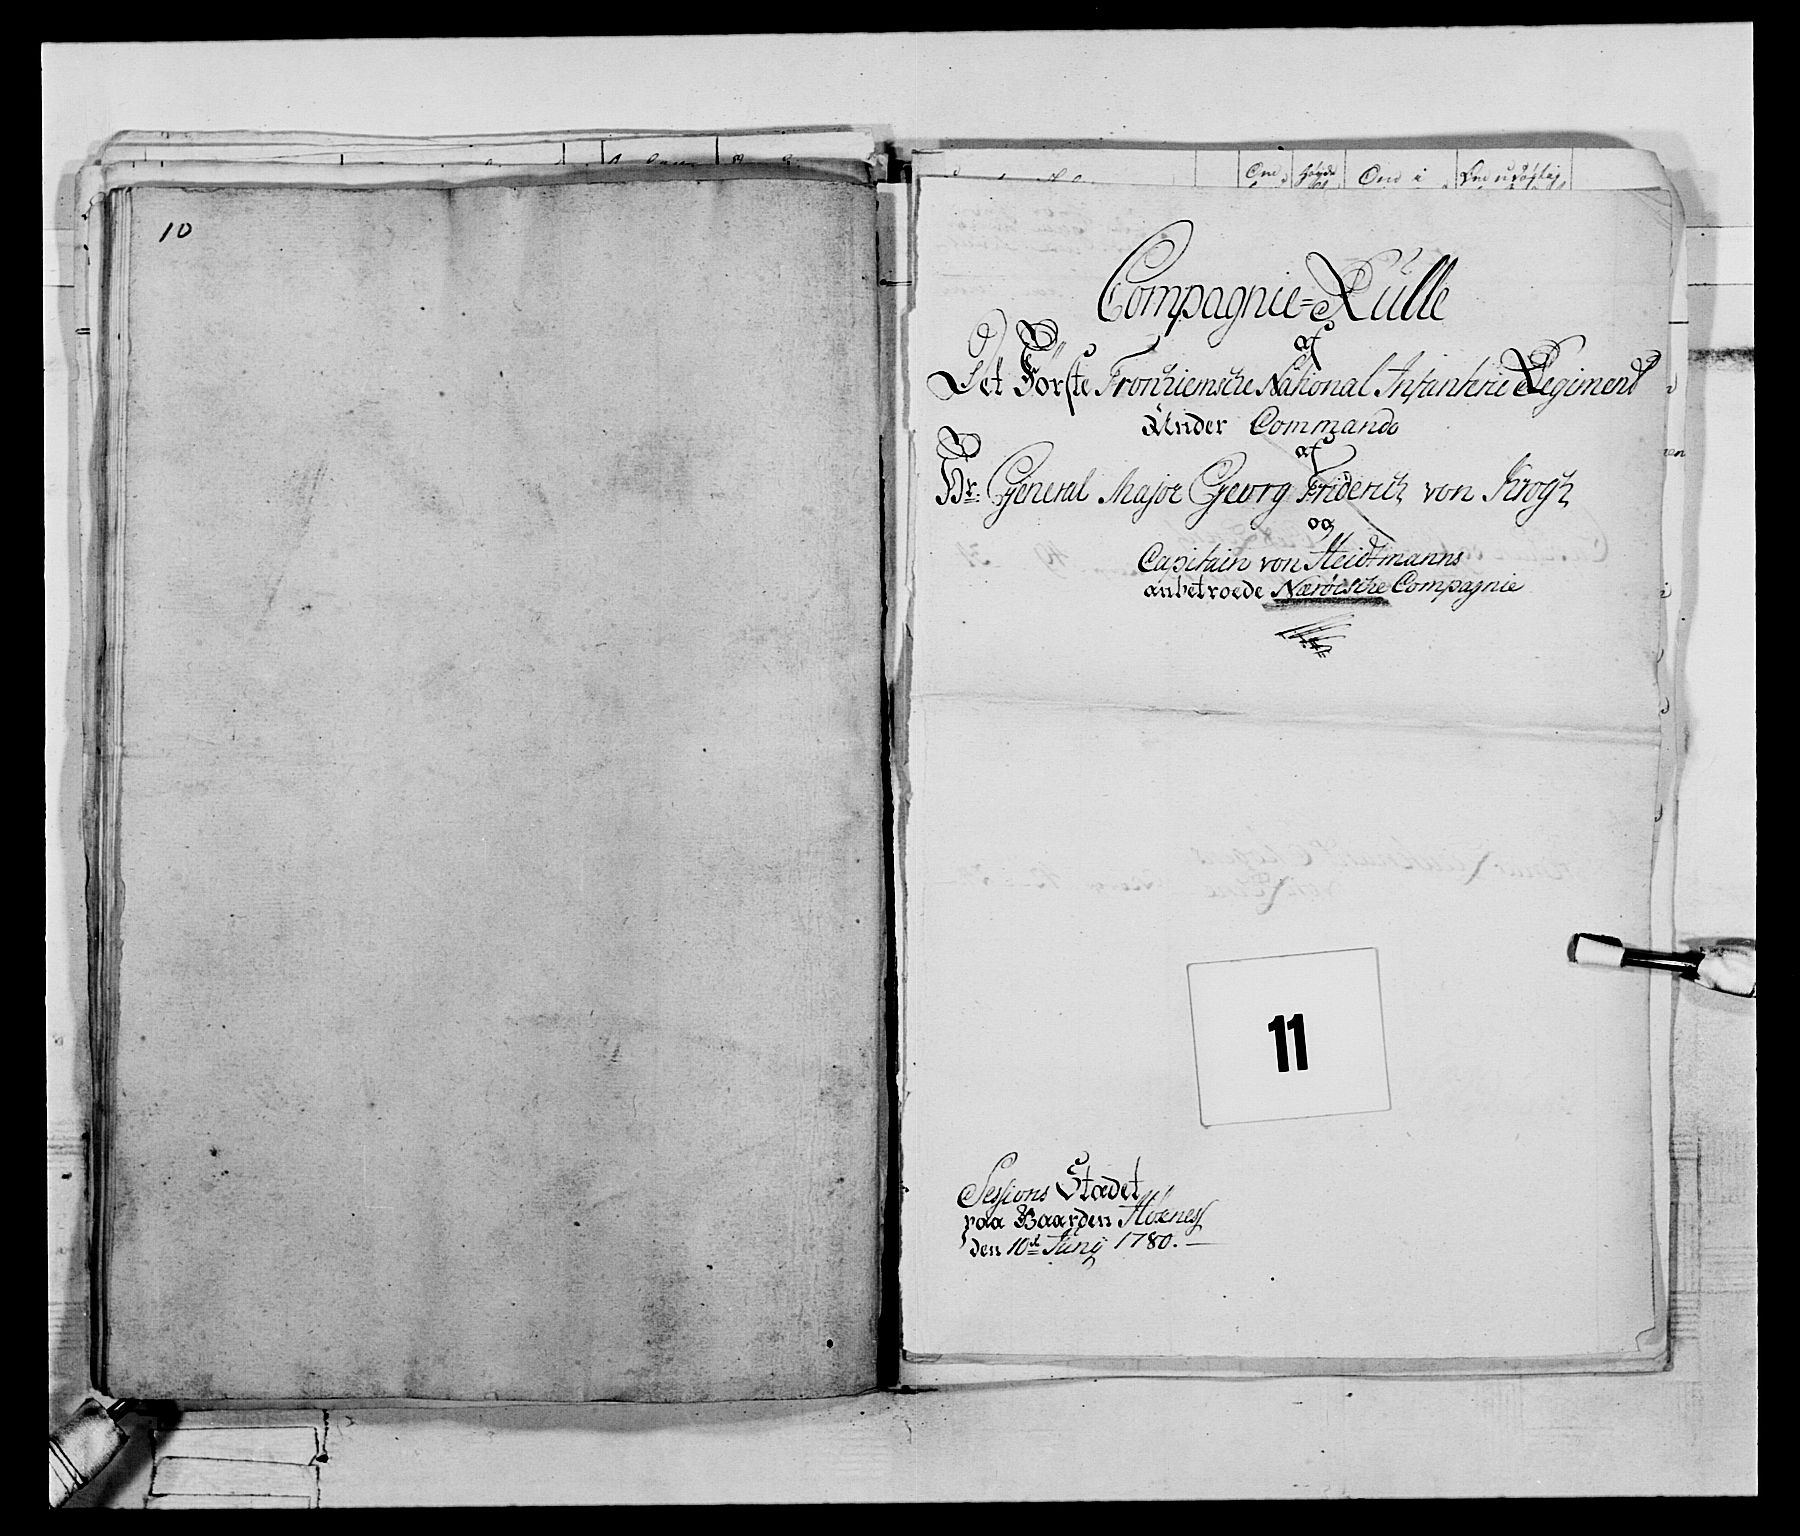 10
Compagnie=Rulle
af
Det Förste Tronhiemsche National Infanterie Regiment
Under Commando
af
Hr: General Major Georg Friderich von Krogh
og
Capitain von Heidtmanns
anbetroede Næröesche Compagnie
11
Sessions Stædet
paa Gaarden Höxnes
den 10de Junÿ 1780.